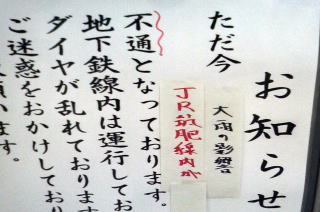 お知らせ
ただ今
大雨の影響
JR筑肥線内が
不通となっております。
地下鉄線内は運行してお
ダイヤが乱れております
ご迷惑をおかけしており
います。